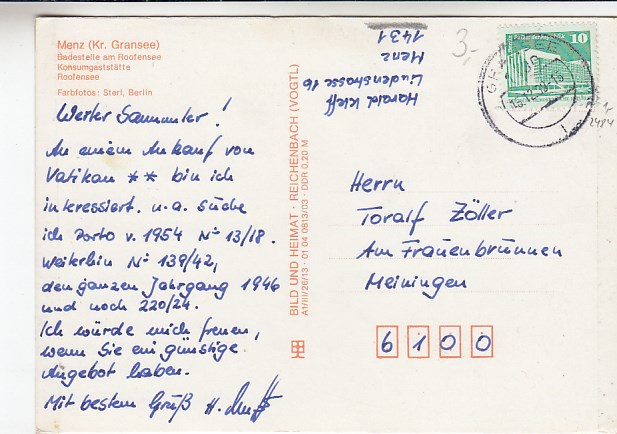 Menz (Kr. Gransee)
Badestelle am Roofensee
Konsumgaststätte
Roofensee
Farbfotos: Sterl. Berlin
Werter Sammler!
An einem Ankauf von
Vatikan ** bin ich
interessiert. u.a. suche
ich Porto v. 1954 N° 13/18.
Weiterhin N° 139/42,
den ganzen Jahrgang 1946
und noch 220/24.
Ich würde mich freuen,
wenn Sie ein günstige
Angebot haben.
Mit bestem Gruß H.
BILD UND HEIMAT · REICHENBACH (VOGTL)
A1/III/26/13 · 01 04 0813/03 · DDR 0,20 M
Harald
Lindenstrasse 16
Menz
1431
3,-
10
GRANSEE
Herrn
Toralf Zöller
Am Frauenbrunnen
Meiningen
6100